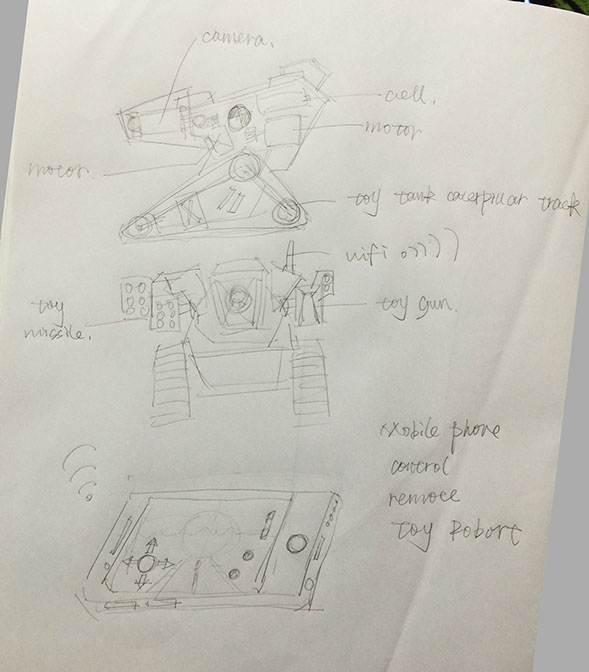 camera.
cell.
motor
motor.
toy tank caterpillar track
wifi
toy
missile.
toy gun.
Mobile phone
control
remote
toy Robort